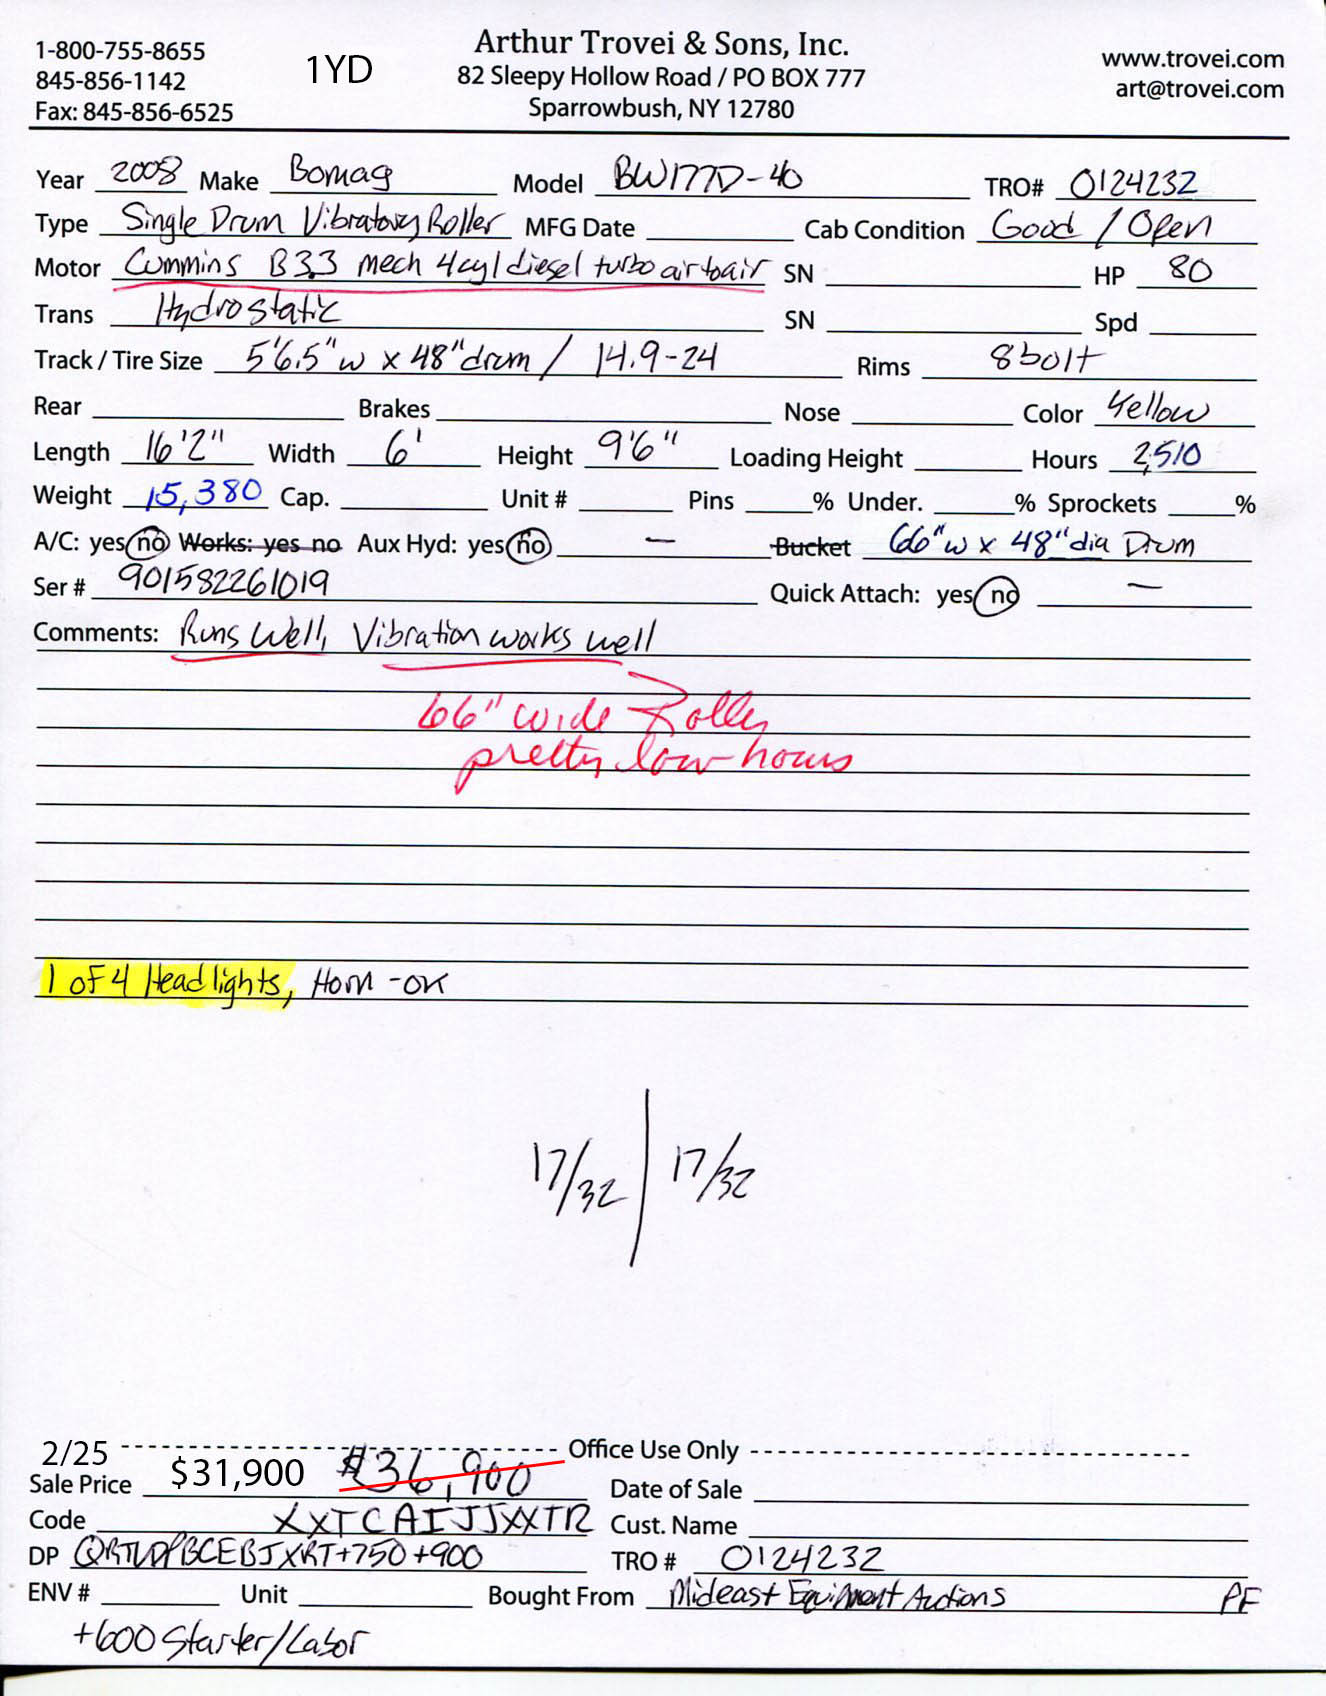 1-800-755-8655
845-856-1142
Fax: 845-856-6525
1YD
Arthur Trovei & Sons, Inc.
82 Sleepy Hollow Road / PO BOX 777
Sparrowbush, NY 12780
www.trovei.com
art@trovei.com
Year 2008 Make Bomag Model BW177D-40 TRO# 0124232
Type Single Drum Vibratory Roller MFG Date Cab Condition Good / Open
Motor Cummins B3.3 mech 4cyl diesel turbo air to air SN HP 80
Trans Hydrostatic SN Spd
Track / Tire Size 5'6.5"w x 48"drum / 14.9-24 Rims 8 bolt
Rear Brakes Nose Color Yellow
Length 16'2" Width 6' Height 9'6" Loading Height Hours 2,510
Weight 15,380 Cap. Unit # Pins % Under. % Sprockets %
A/C: yes no Works: yes no Aux Hyd: yes no — Bucket 66"w x 48"dia Drum
Ser # 901582261019 Quick Attach: yes no —
Comments: Runs Well, Vibration works well
66" wide Roller
pretty low hours
1 of 4 Headlights, Horn - OK
17/32 | 17/32
2/25 Office Use Only
Sale Price $31,900 $36,900 Date of Sale
Code XXTCAIJJXXTR Cust. Name
DP +750+900 TRO # 0124232
ENV # Unit Bought From Mideast Equipment Auctions PF
+600 Starter/Labor